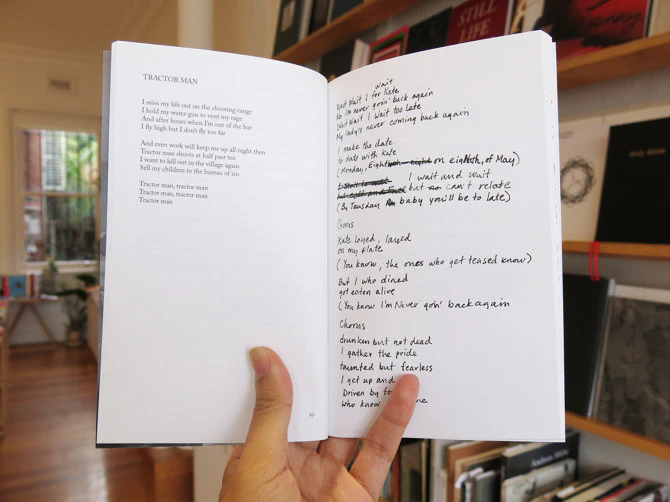 TRACTOR MAN
I miss my life out on the shooting range
I hold my water gun to vent my rage
And after hours when I'm out of the bar
I fly high but I don't fly too far
And even work will keep me up all night then
Tractor man shoots at half past ten
I want to kill out in the village again
Sell my children to the bureau of sin
Tractor man, tractor man
Tractor man, tractor man
Tractor man
wait
Wait Wait I for Kate
No I'm never goin' back again
Wait Wait I wait too late
My lady's never coming back again
I make the date
to date with Kate
(Monday, Eighteen - eight on eighth, of May)
I wait and wait
but can't relate
(By Teusday baby you'll be to late)
Chorus
Kate layed, layed
on my plate
(You know, the ones who get teased know)
But I who dined
got eaten alive
(You know I'm Never goin' back again
Chorus
drunken but not dead
I gather the pride
taunted but fearless
I get up and
Driven by
Who know
STILL LIFE
Holy Bible